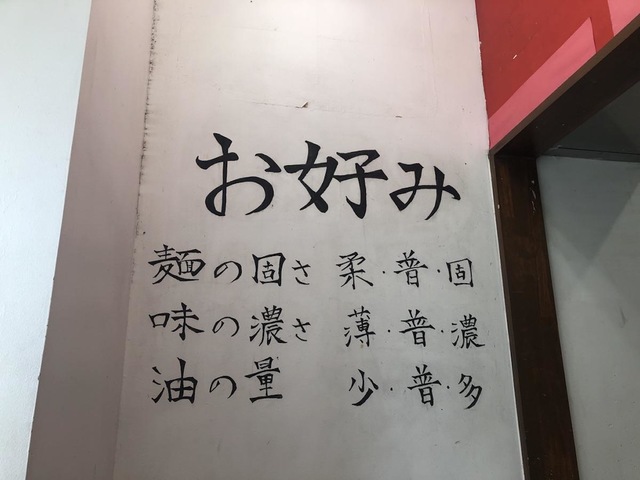 お好み
麺の固さ 柔・普・固
味の濃さ 薄・普・濃
油の量 少・普・多